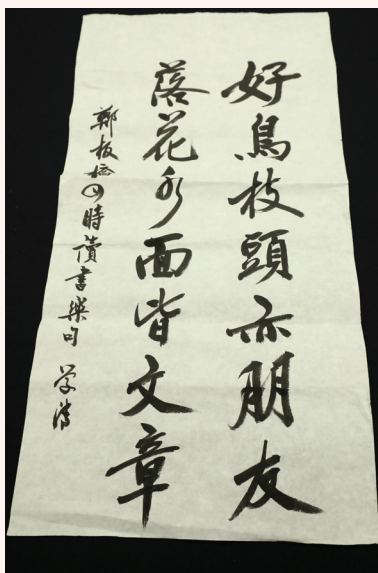 好鳥枝頭亦朋友
落花水面皆文章
鄭板橋四時讀書樂句 學濤